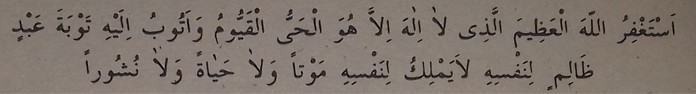 اَسْتَغْفِرُ اللّٰهَ الْعَظِيمَ الَّذِى لاٰ اِلٰهَ اِلاَّ هُوَ الْحَىُّ الْقَيُّومُ وَاَتُوبُ اِلَيْهِ تَوْبَةَ عَبْدٍ
ظَالِمٍ لِنَفْسِهِ لاَيَمْلِكُ لِنَفْسِهِ مَوْتاً وَلاٰ حَيٰاةً وَلاٰ نُشُوراً